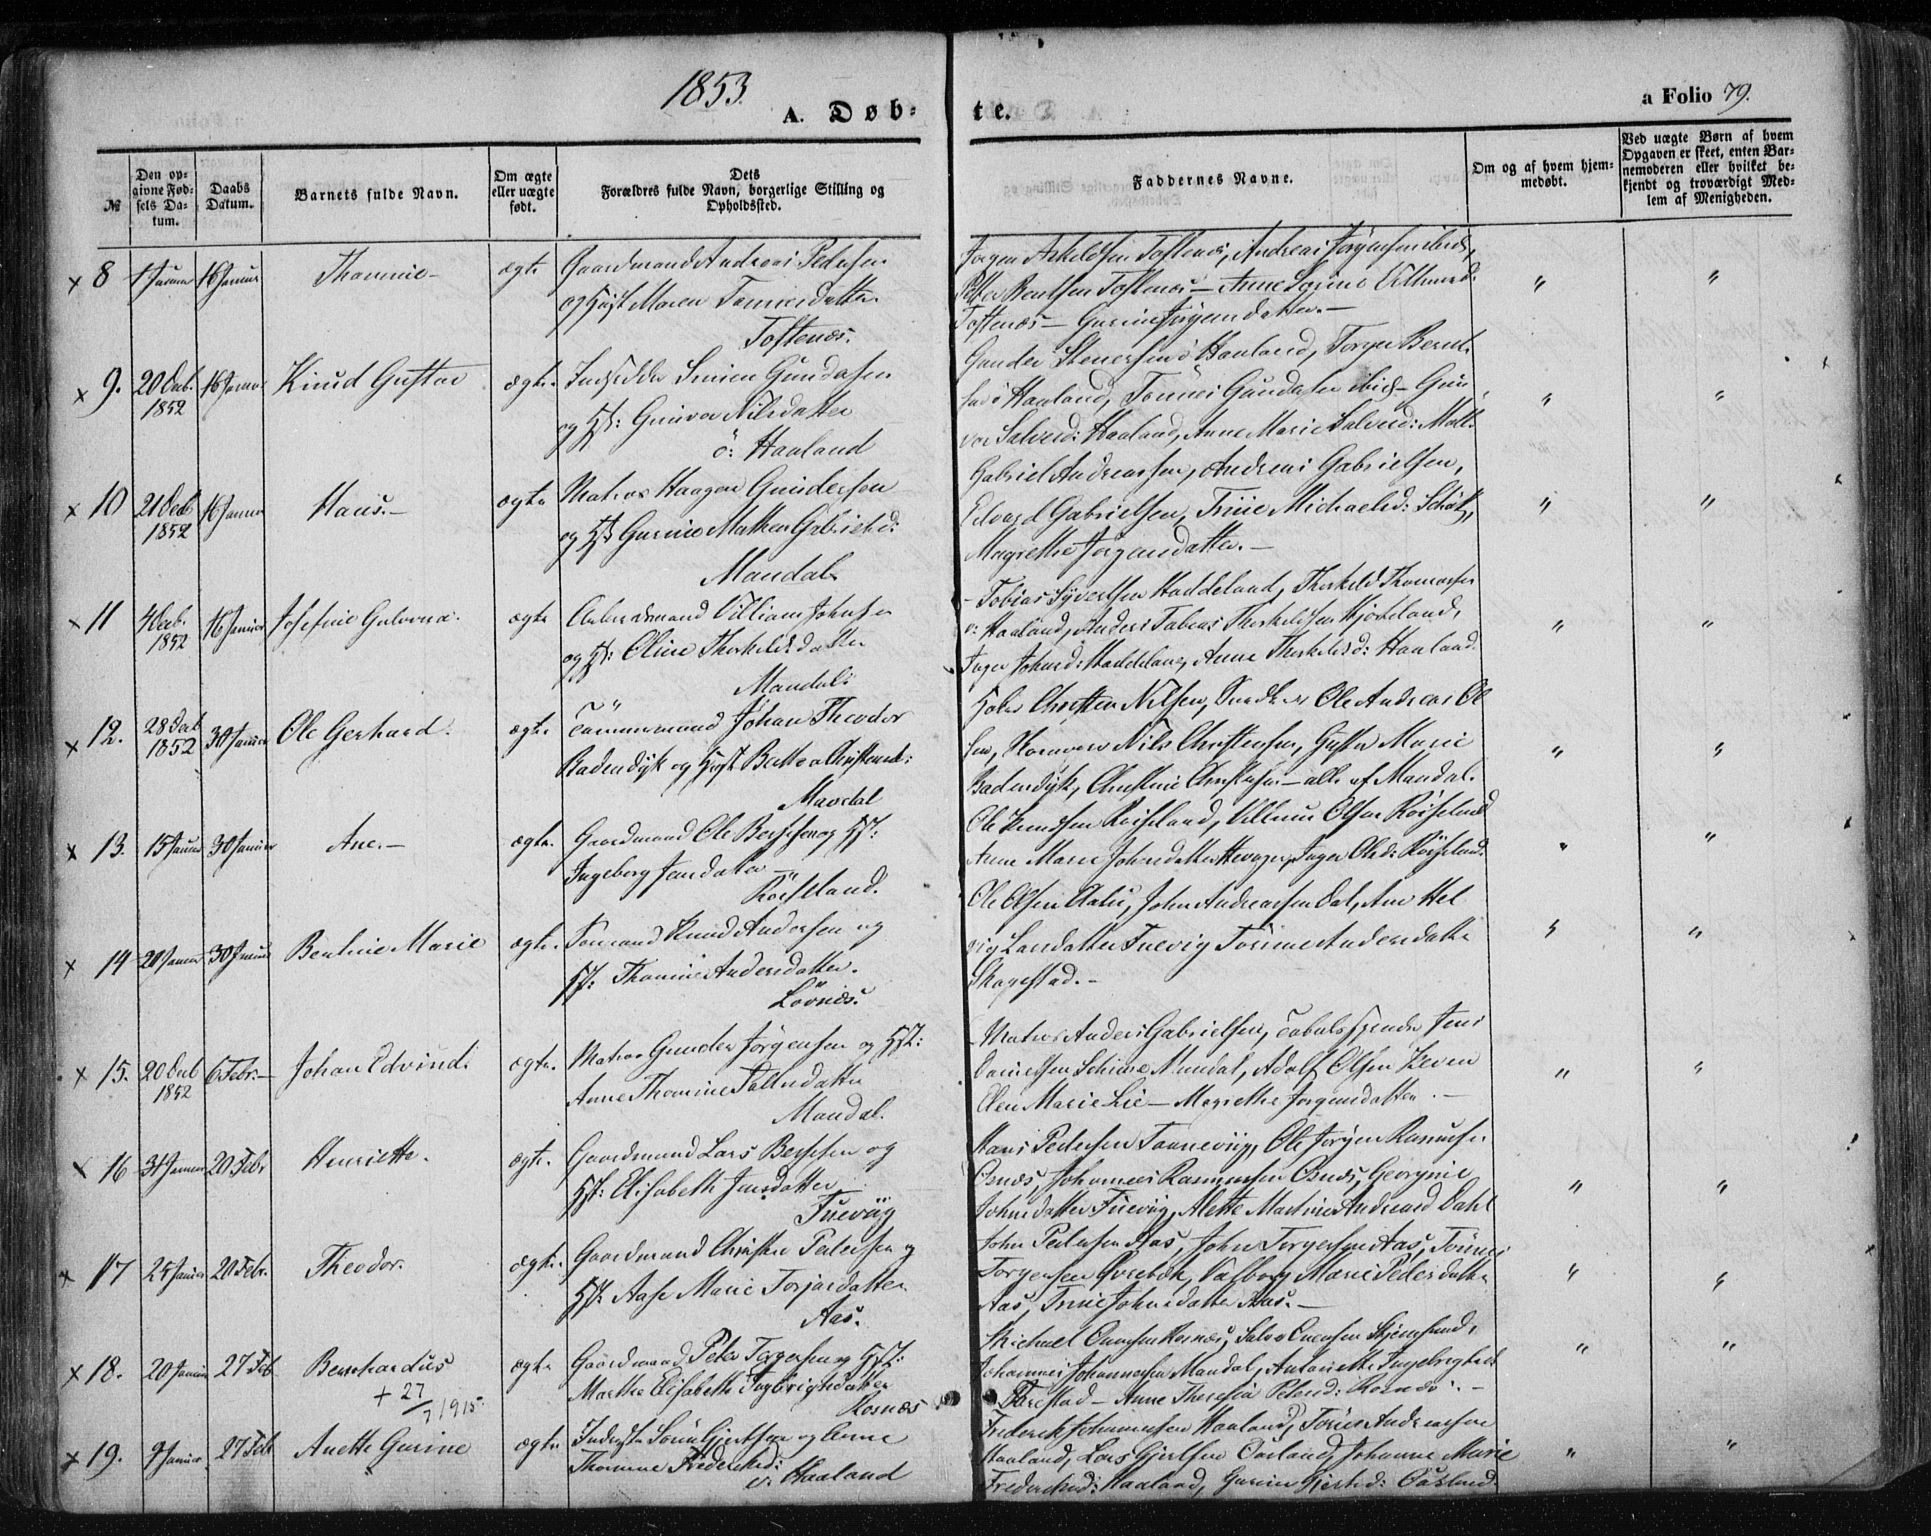 1853.
A. Døb-
te.
a Folio 79.
№
Den op-
givne Fød-
sels Da-
tum.
Daabs
Datum.
Barnets fulde Navn.
Om ægte
eller uægte
født.
Dets
Forældres fulde Navn, borgerlige Stilling og
Opholdssted.
Faddernes Navne.
Om og af hvem hjem-
medøbt.
Ved uægte Børn af hvem
Opgaven er skeet, enten Bar-
nemoderen eller hvilket be-
kjendt og troværdigt Med-
lem af Menigheden.
x 8 1 Januar 16 Januar Thomine - ægte Gaardmand Andreas Pedersen
og Hust Maren Tønnesdatter
Toftenæs.
Jørgen Askildsen Toftenæs, Andreas Jørgensen ibid,
Petter Berntsen Toftenæs - Anne
Toftenæs - Gurine Jørgensdatter. -
" "
x 9. 20 Decb. 1852 16 Januar Knud Gustav ægte. Inds Gundersen
og Hst: Gunvor Nilsdatter
ö: Haaland
Gunder Stenersen ö Haaland, Torger Bernt
sen ö Haaland, Tønnes Gundersen ibid - Gun
vor Salvesd: Haaland, Anne Marie Salvesd:
" "
x 10 21 Decb 1852 16 Januar Hans. - ægte Matros Haagen Gundersen
og Hst Gurine Mathea Gabrielsd:
Mandal
Gabriel Andreassen, Andreas Gabrielsen,
Edvard Gabrielsen, Trine Michaelsd:
Magrethe Jørgensdatter. -
" "
x 11 4 Decb. 1852 16 Januar Josefine Gulovna. ægte Arbeidsmand Villiam Johnsen
og Hst: Oline Therkeldsdatter
Mandal:
Tobias Syvertsen Haddeland, Therkeld Thomassen
ö: Haaland, Anders Tobias Therkeldsen
Inger Johnsd: Haddeland, Anne Therkelsd: Haaland.
" "
x 12. 28 Decb 1852 30 Januar Ole Gerhard. ægte. Tømmermand Johan Theodor
Badendyk og Hust Christensd:
Mandal
Christen Nilsen, Snedker Ole Andreas Ol
sen, Nils Christensen, Gusta Marie
Badendyk, Christine Christensen - alle af Mandal.
" "
x 13. 15 Januar 30 Januar Ane. - ægte. Gaardmand Ole Berntsen og Hst:
Ingeborg Jensdatter -
Röiseland.
Ole Knudsen Röiseland, Villum Olsen Röiseland
Anne Marie Johnsdatter Inger Olsd: Röiseland.
" "
x 14 20 Januar 30 Januar Bentine Marie ægte. Knud Andersen og
Hst: Thomine Andersdatter.
Lövnæs.
Ole Olsen John Andreassen Dal, Ane Hel
vig Larsdatter Tuevig Tønnine Andersdatter
Skogestad. -
" "
x 15. 20 Decb 1852 6 Febr. - Johan Edvind. ægte. Matros Gunder Jørgensen og Hst:
Anne Thomine Tallaksdatter
Mandal.
Matros Anders Gabrielsen, Jens
Danielsen Mandal, Adolf Olsen
Elen Marie Lie - Magrethe Jørgensdatter. -
" "
x 16 31 Januar 20 Febr Henriette. ægte. Gaardmand Lars Berntsen og
Hst: Elisabeth Jensdatter
Tuevig
Hans Pedersen Tonnevig, Ole Jørgen Rasmusse
Osnæs, Johannes Rasmussen Osnæs, Georgine
Johnsdatter Tuevig, Alette Martine Andreasd Dahl
" "
x 17 25 Januar 20 Febr. Theodor. ægte. Gaardmand Christen Pedersen og
Hst: Aase Marie Torjusdatter
Aas.
John Pedersen Aas, John Torgersen Aas, Tönnes
Torgersen Øvrebøk, Valborg Marie Pedersdatter
Aas, Trine Johnsdatter Aas. -
" "
x 18. 20 Januar 27 Feb Bernhardus
+ 27/7 1915. ægte Gaardmand Peter Torgersen og Hst:
Marthe Elisabeth Ingebrigtsdatter
Rosnæs
Michael Rosnæs, Salve Evensen
Johannes Johannessen Mandal, Antonette Ingebrigtsd
Farestad - Anne Theresia Petersd: Rosnæs. -
" "
x 19. 9 Januar. 27 Feb Anette Gurine ægte Inderste Sören Gjertsen og Anne
Thomine Frederiksd:
ö: Haaland
Frederik Johannessen Haaland, Tönnes Andreassen
Haaland, Lars Gjertsen Johanne Marie
Frederiksd: Haaland, Gurine Gjertsd:
" "